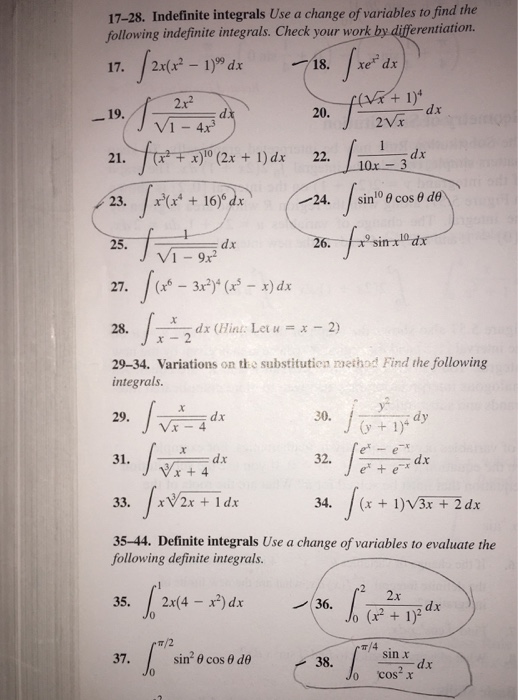 17–28. Indefinite integrals Use a change of variables to find the
following indefinite integrals. Check your work by differentiation.
17. ∫ 2x(x² − 1)⁹⁹ dx 18. ∫ xe^(x²) dx
19. ∫ 2x²/√(1 − 4x³) dx 20. ∫ (√x + 1)⁴/(2√x) dx
21. ∫ (x² + x)¹⁰ (2x + 1) dx 22. ∫ 1/(10x − 3) dx
23. ∫ x³(x⁴ + 16)⁶ dx 24. ∫ sin¹⁰ θ cos θ dθ
25. ∫ 1/√(1 − 9x²) dx 26. ∫ x⁹ sin x¹⁰ dx
27. ∫ (x⁶ − 3x²)⁴ (x⁵ − x) dx
28. ∫ x/(x − 2) dx (Hint: Let u = x − 2)
29–34. Variations on the substitution method Find the following
integrals.
29. ∫ x/√(x − 4) dx 30. ∫ y²/(y + 1)⁴ dy
31. ∫ x/∛(x + 4) dx 32. ∫ (eˣ − e⁻ˣ)/(eˣ + e⁻ˣ) dx
33. ∫ x∛(2x + 1) dx 34. ∫ (x + 1)√(3x + 2) dx
35–44. Definite integrals Use a change of variables to evaluate the
following definite integrals.
35. ∫₀¹ 2x(4 − x²) dx 36. ∫₀² 2x/(x² + 1)² dx
37. ∫₀^(π/2) sin² θ cos θ dθ 38. ∫₀^(π/4) sin x/cos² x dx